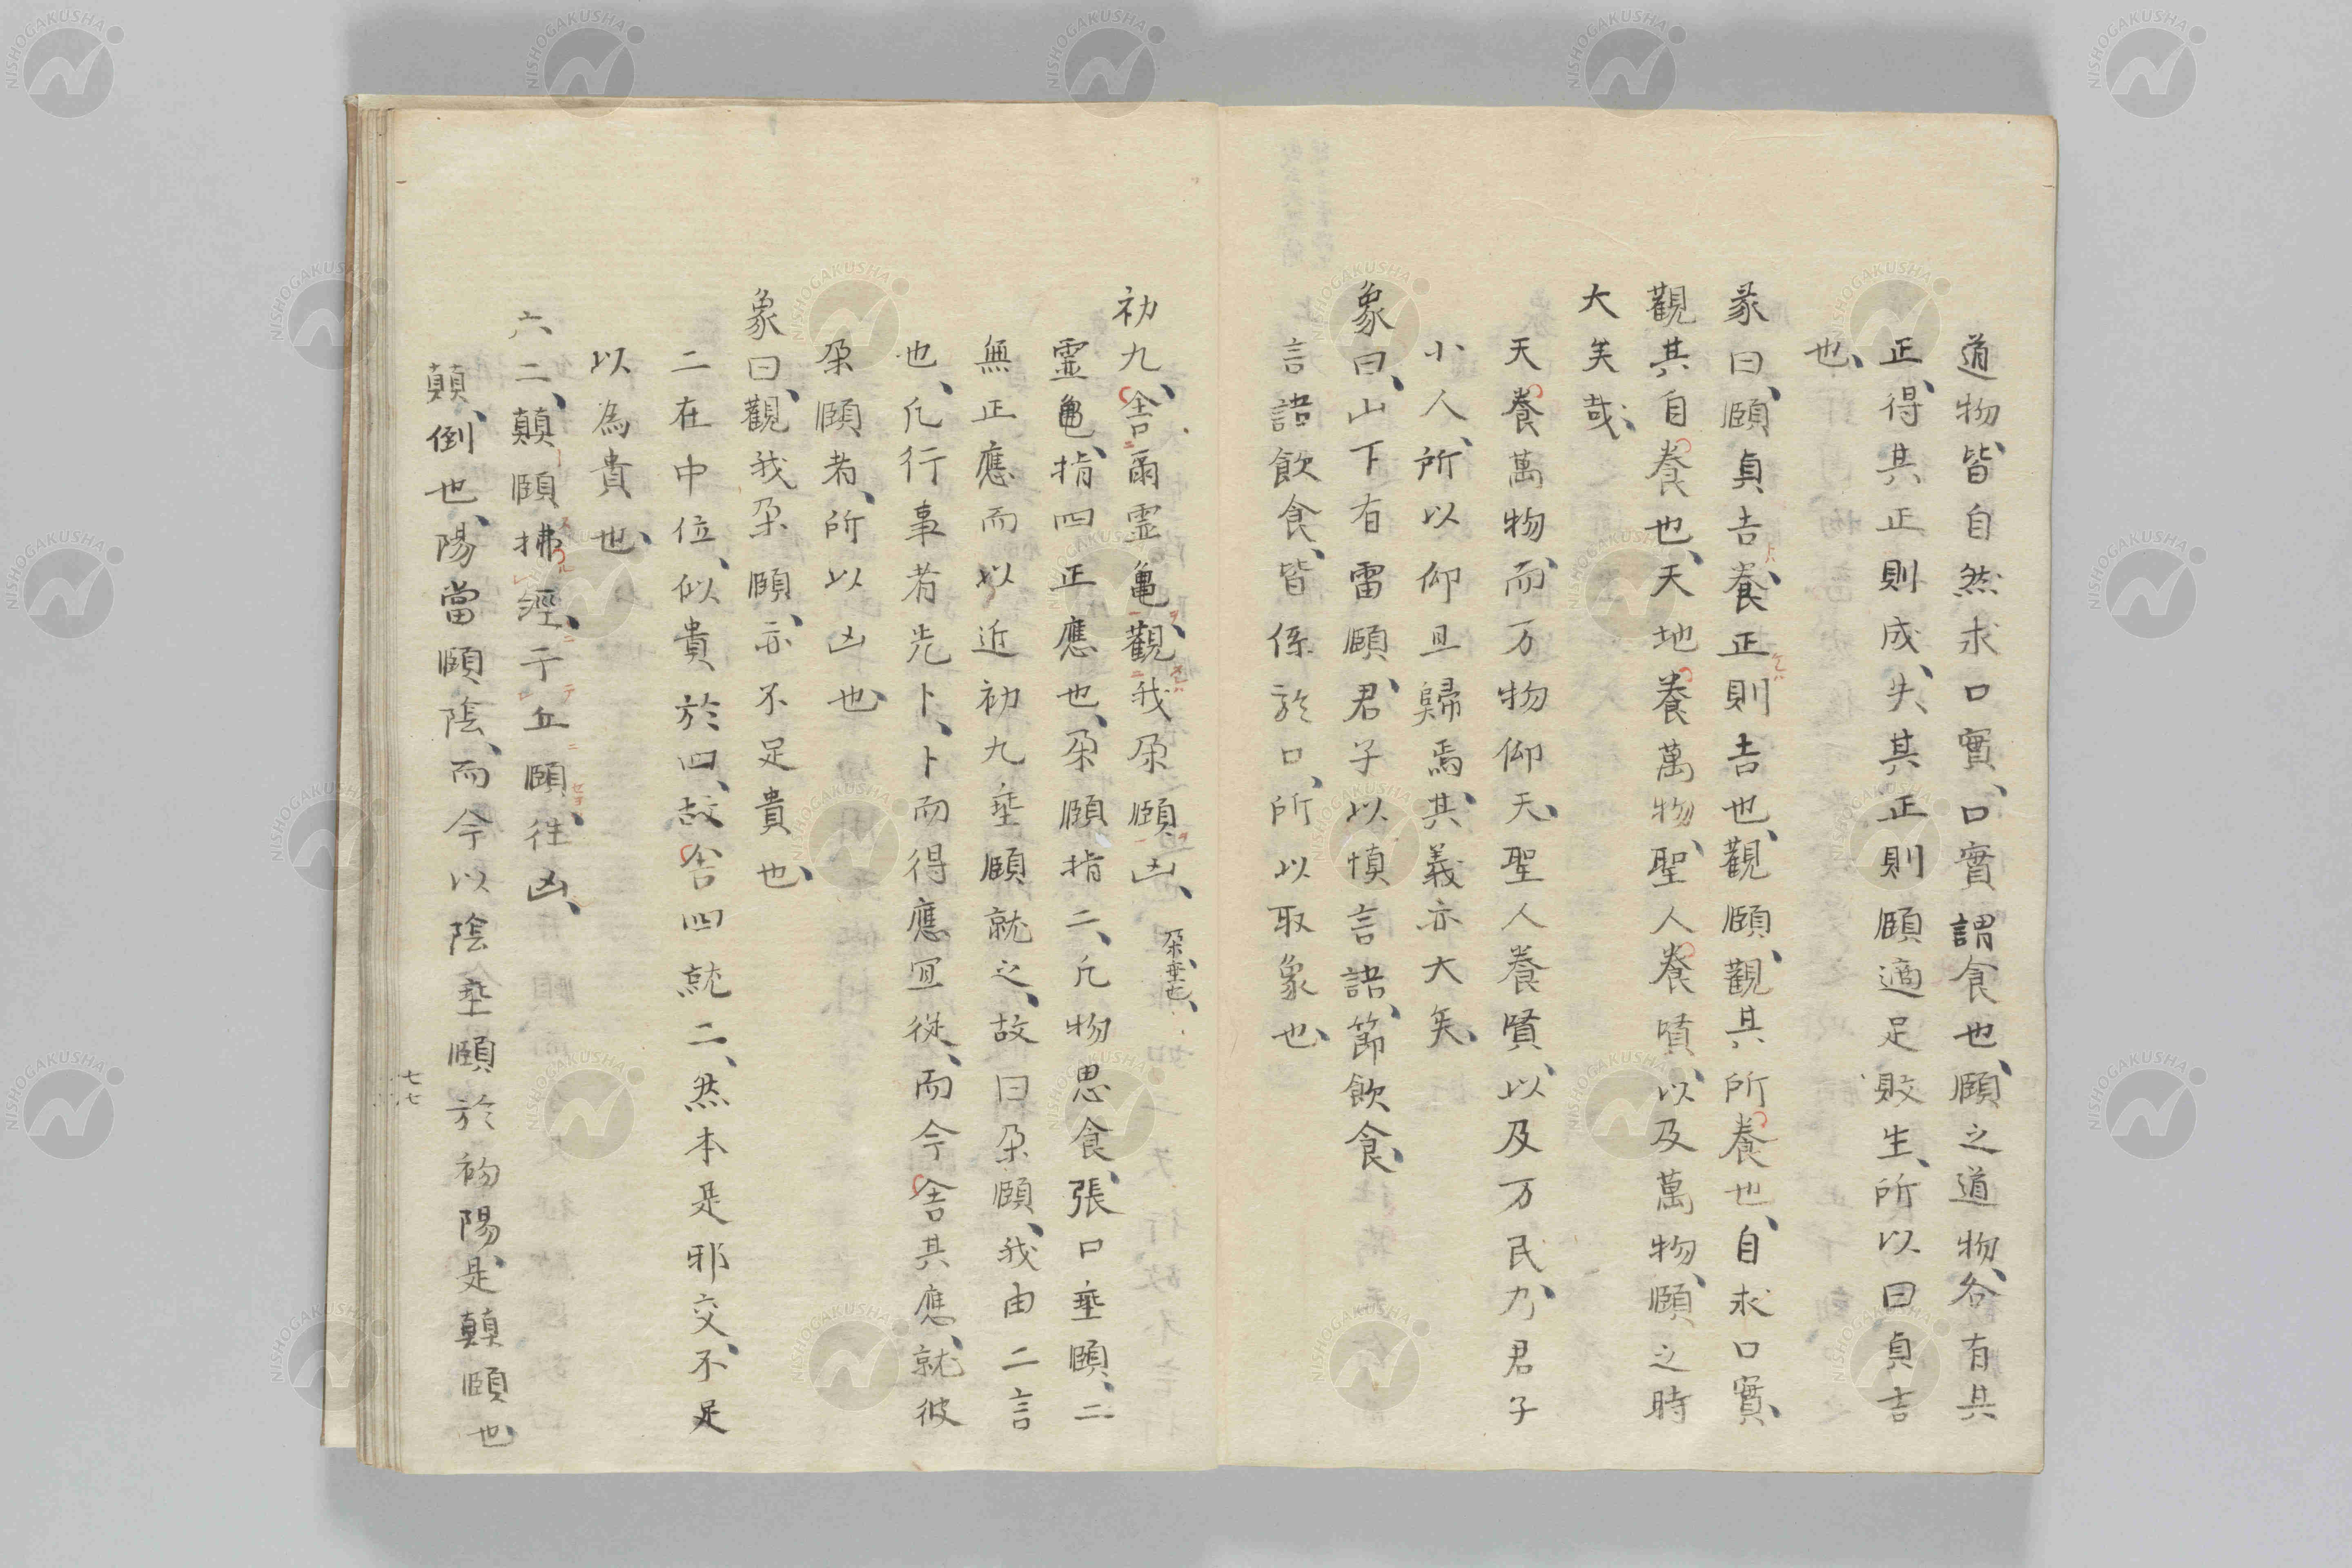 道物、皆自然求口實、口實謂食也、頤之道物、各有其
正、得其正則成、失其正則頤適足敗生、所以曰貞吉
也、
彖曰、頤貞吉、養正則吉也、觀頤、觀其所養也、自求口實、
觀其自養也、天地養萬物、聖人養賢、以及萬物、頤之時
大矣哉、
天養萬物而、万物仰天、聖人養賢、以及万民、乃君子
小人、所以仰且歸焉、其義亦大矣、
象曰、山下有雷頤、君子以慎言語、節飲食、
言語飲食、皆係於口、所以取象也、
初九、舍爾霊亀、觀我朶頤、凶、朶、垂也、
霊亀、指四正應也、朶頤指二、凡物思食、張口垂頤、二
無正應而以近初九垂頤就之、故曰朶頤、我由二言
也、凡行事者先卜、卜而得應宜從、而今舍其應、就彼
朶頤者、所以凶也、
象曰、觀我朶頤、亦不足貴也、
二在中位、似貴於四、故舍四就二、然本是邪交、不足
以為貴也、
六二、顛頤拂經、于丘頤、往凶、
顛、倒也、陽當頤陰、而今以陰垂頤於初陽、是顛頤也、
七七
NISHOGAKUSHA